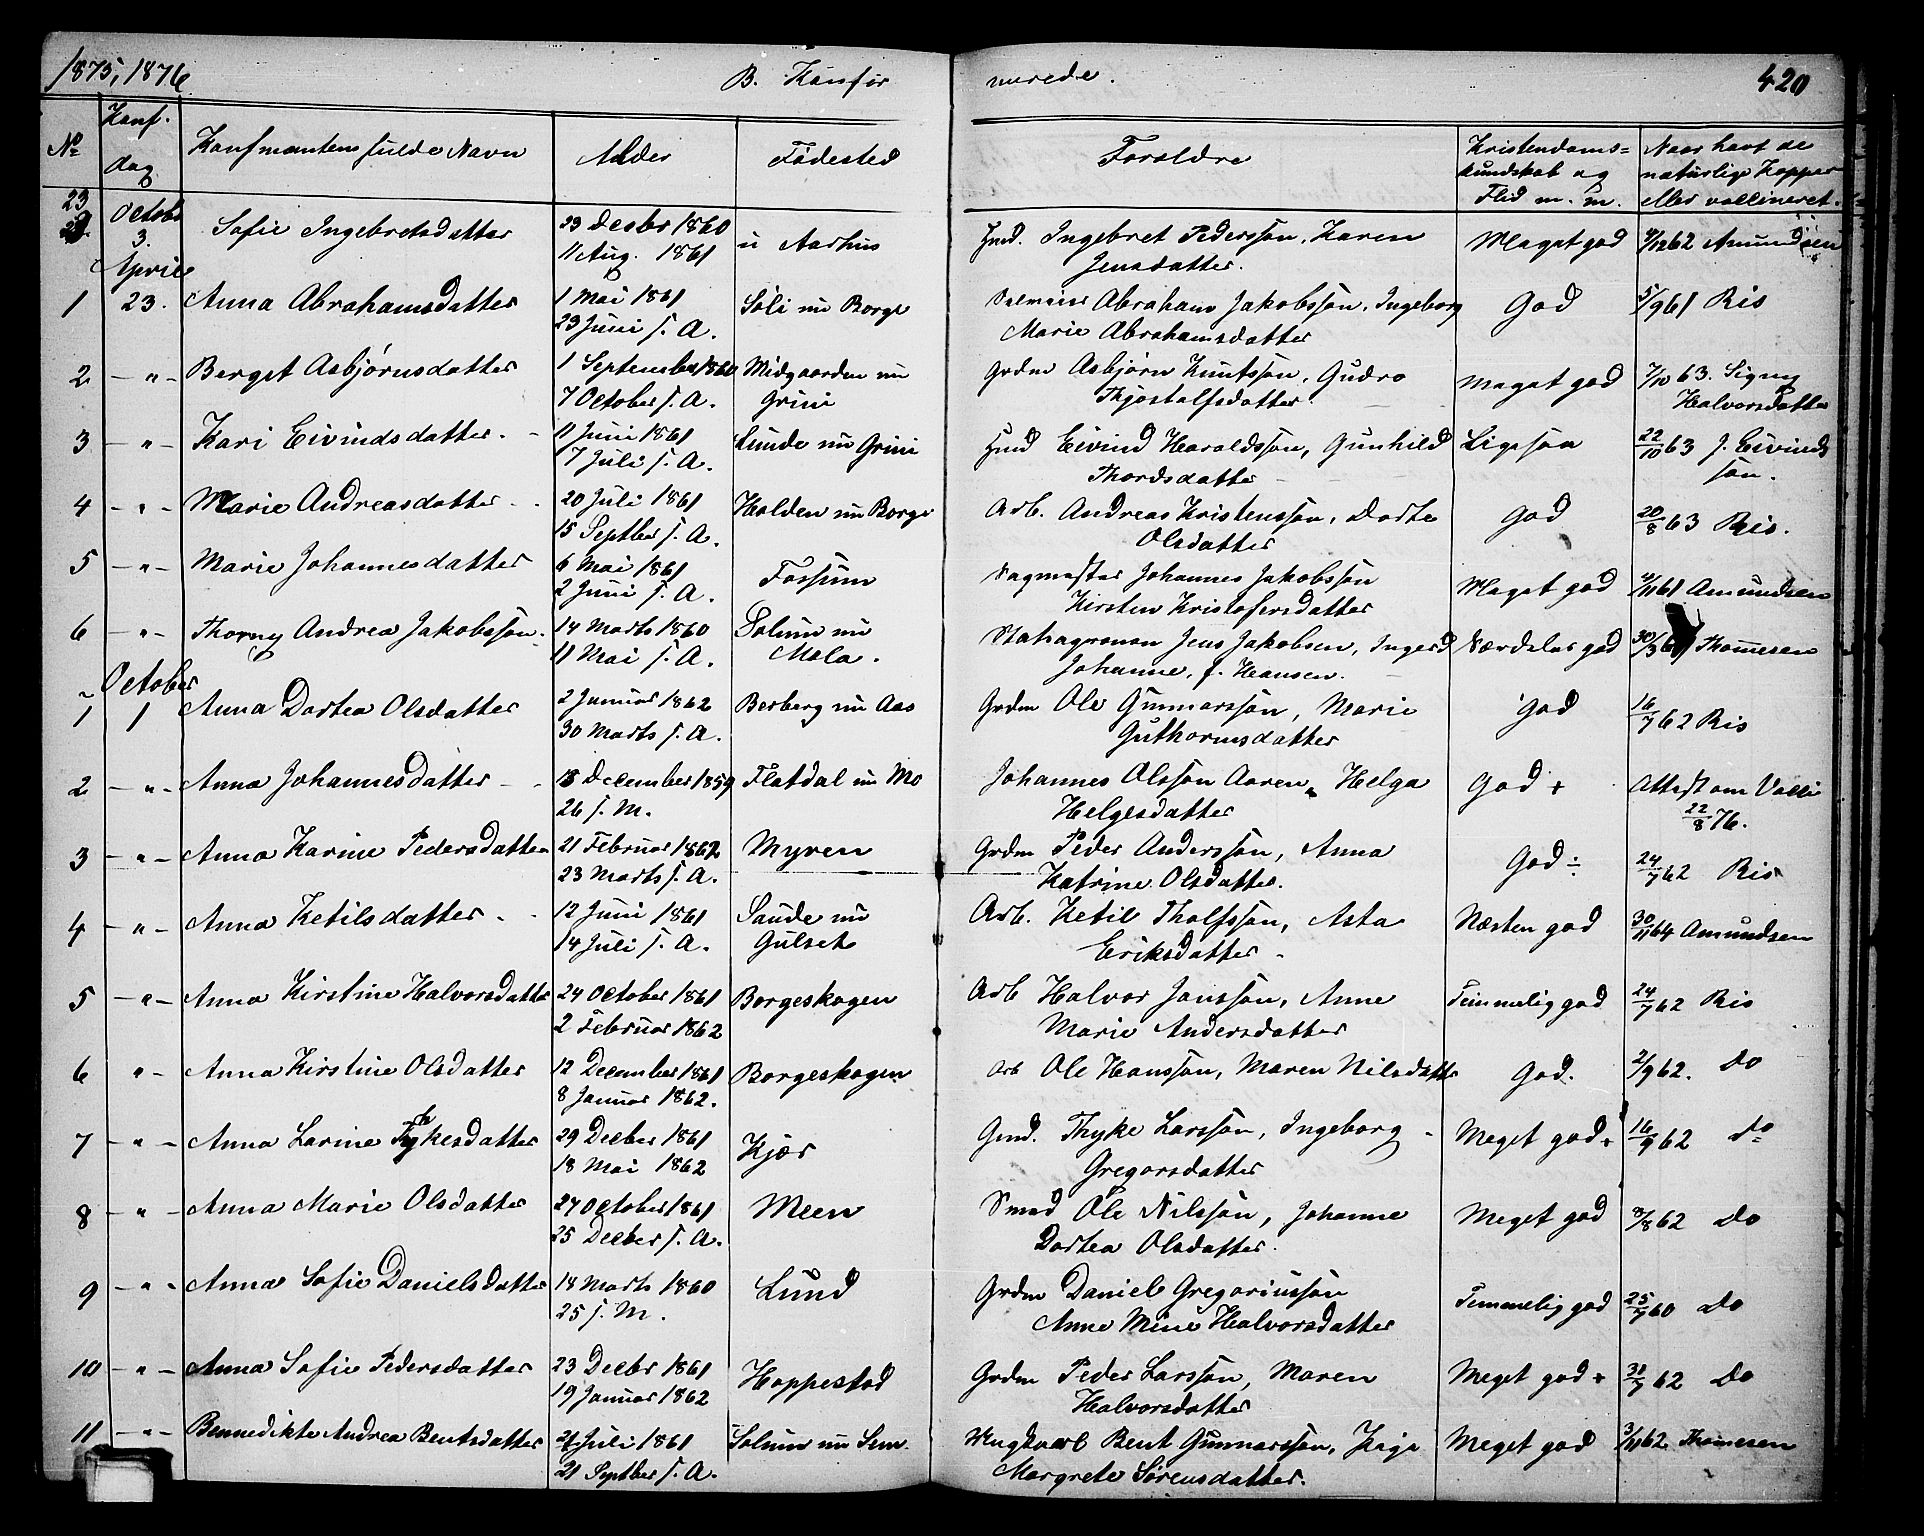 1875, 1876
B. Konfir
merede.
420
No
Konf. dag
Konfmantens fulde Navn
Alder
Fødested
Forældre
Kristendoms=
kundskab og
Flid m. m.
Naar havt de
naturlige Kopper
eller vaccineret.
23
Octobr
3.
Sofie Ingebretsdatter
23 Decbr 1860
11 Aug. 1861
u Aarhus
Hmd. Ingebret Pederssøn, Karen
Jensdatter.
Meget god
4/12 62 Amundsen
April
1 23. Anna Abrahamsdatter
1 Mai 1861
23 Juni s. A.
Søli nu Borge
Abraham Jakobssøn, Ingeborg
Marie Abrahamsdatter
God
5/9 61 Ris
2 - " - Berget Asbjørnsdatter
1 September 1860
7 October s. A.
Midgaarden nu
Grini
Grdm Asbjørn Knutssøn, Gudro
Thjostolfsdatter.
Meget god
7/10 63. Signy
Halvorsdatter
3 - " - Kari Eivindsdatter. -
11 Juni 1861
7 Juli s. A.
Lunde nu Grini
Hmd Eivind Haraldssøn, Gunhild
Thordsdatter
Ligesøn
22/10 63 J. Eivinds
søn.
4 - " - Marie Andreasdatter - -
20 Juli 1861
15 Septber s. A.
Holden nu Borge
Arb. Andreas Kristenssøn, Dorte
Olsdatter
God
20/8 63 Ris.
5 - " - Marie Johannesdatter
6 Mai 1861
2 Juni s. A.
Fossum
Sagmester Johannes Jakobssøn
Kirsten Kristofersdatter
Meget god
4/11 61 Amundsen
6 - " - Thorny Andrea Jakobssøn.
14 Marts 1860
11 Mai s. A.
Solum nu
Mæla.
Jens Jakobsen, Ingerd
Johanne, f. Hansen.
Særdeles god
30/3 61 Thomesen
October
1 1 Anna Dortea Olsdatter
2 Januar 1862
30 Marts s. A.
Berberg nu Aas
Grdm Ole Gunnarssøn, Marie
Guthormsdatter
God
16/7 62 Ris
2 - " - Anna Johannesdatter - -
18 December 1859
26 s. M.
Flatdal nu Mo
Johannes Olssøn Aaren, Helga
Helgesdatter
God +
Attest om Vacci
22/8 76.
3 - " - Anna Karine Pedersdatter
21 Februar 1862
23 Marts s. A.
Myren
Grdm Peder Anderssøn, Anna
Katrine Olsdatter.
God ÷
24/7 62 Ris
4 - " - Anna Ketilsdatter - -
12 Juni 1861
14 Juli s. A.
Saude nu
Gulset
Arb. Ketil Tholfssøn, Asta
Eriksdatter -
Næsten god
30/11 64 Amundsen
5 - " - Anna Kirstine Halvorsdatter
24 October 1861
2 Februar 1862
Borgeskogen
Arb Halvor Janssøn, Anne
Marie Andersdatter
Temmelig god
24/7 62 Ris
6 " - Anna Kirstine Olsdatter
12 December 1861
8 Januar 1862.
Borgeskogen
Arb Ole Hanssøn, Maren Nilsdatter
God.
2/9 62. Do
7 - " - Anna Larine Thykesdatter
29 Decber 1861
18 Mai 1862
Kjær
Gmd. Thyke Larssøn, Ingeborg -
Gregorsdatter
Meget god +
16/9 62 Do
8 - " - Anna Marie Olsdatter
27 October 1861
25 Decber s. A.
Meen
Smed Ole Nilssøn, Johanne
Dortea Olsdatter.
Meget god
8/8 62 Do
9 - " - Anna Sofie Danielsdatter
14 Marts 1860
25 s. M.
Lund
Grdm Daniel Gregoriussøn
Anne Mine Halvorsdatter
Temmelig god
25/7 60 Do
10 - " - Anna Sofie Pedersdatter
23 Decbr 1861
19 Januar 1862
Hoppestad
Grdm Peder Larssøn, Maren
Halvorsdatter
Meget god +
31/7 62 Do
11 - " - Bennedikte Andrea Bentsdatter
21 Juli 1861
21 Septber s. A.
Solum nu Sem.
Bent Gunnarssøn, Inge
Margrete Sørensdatter.
Meget god
3/11 62. Thomesen